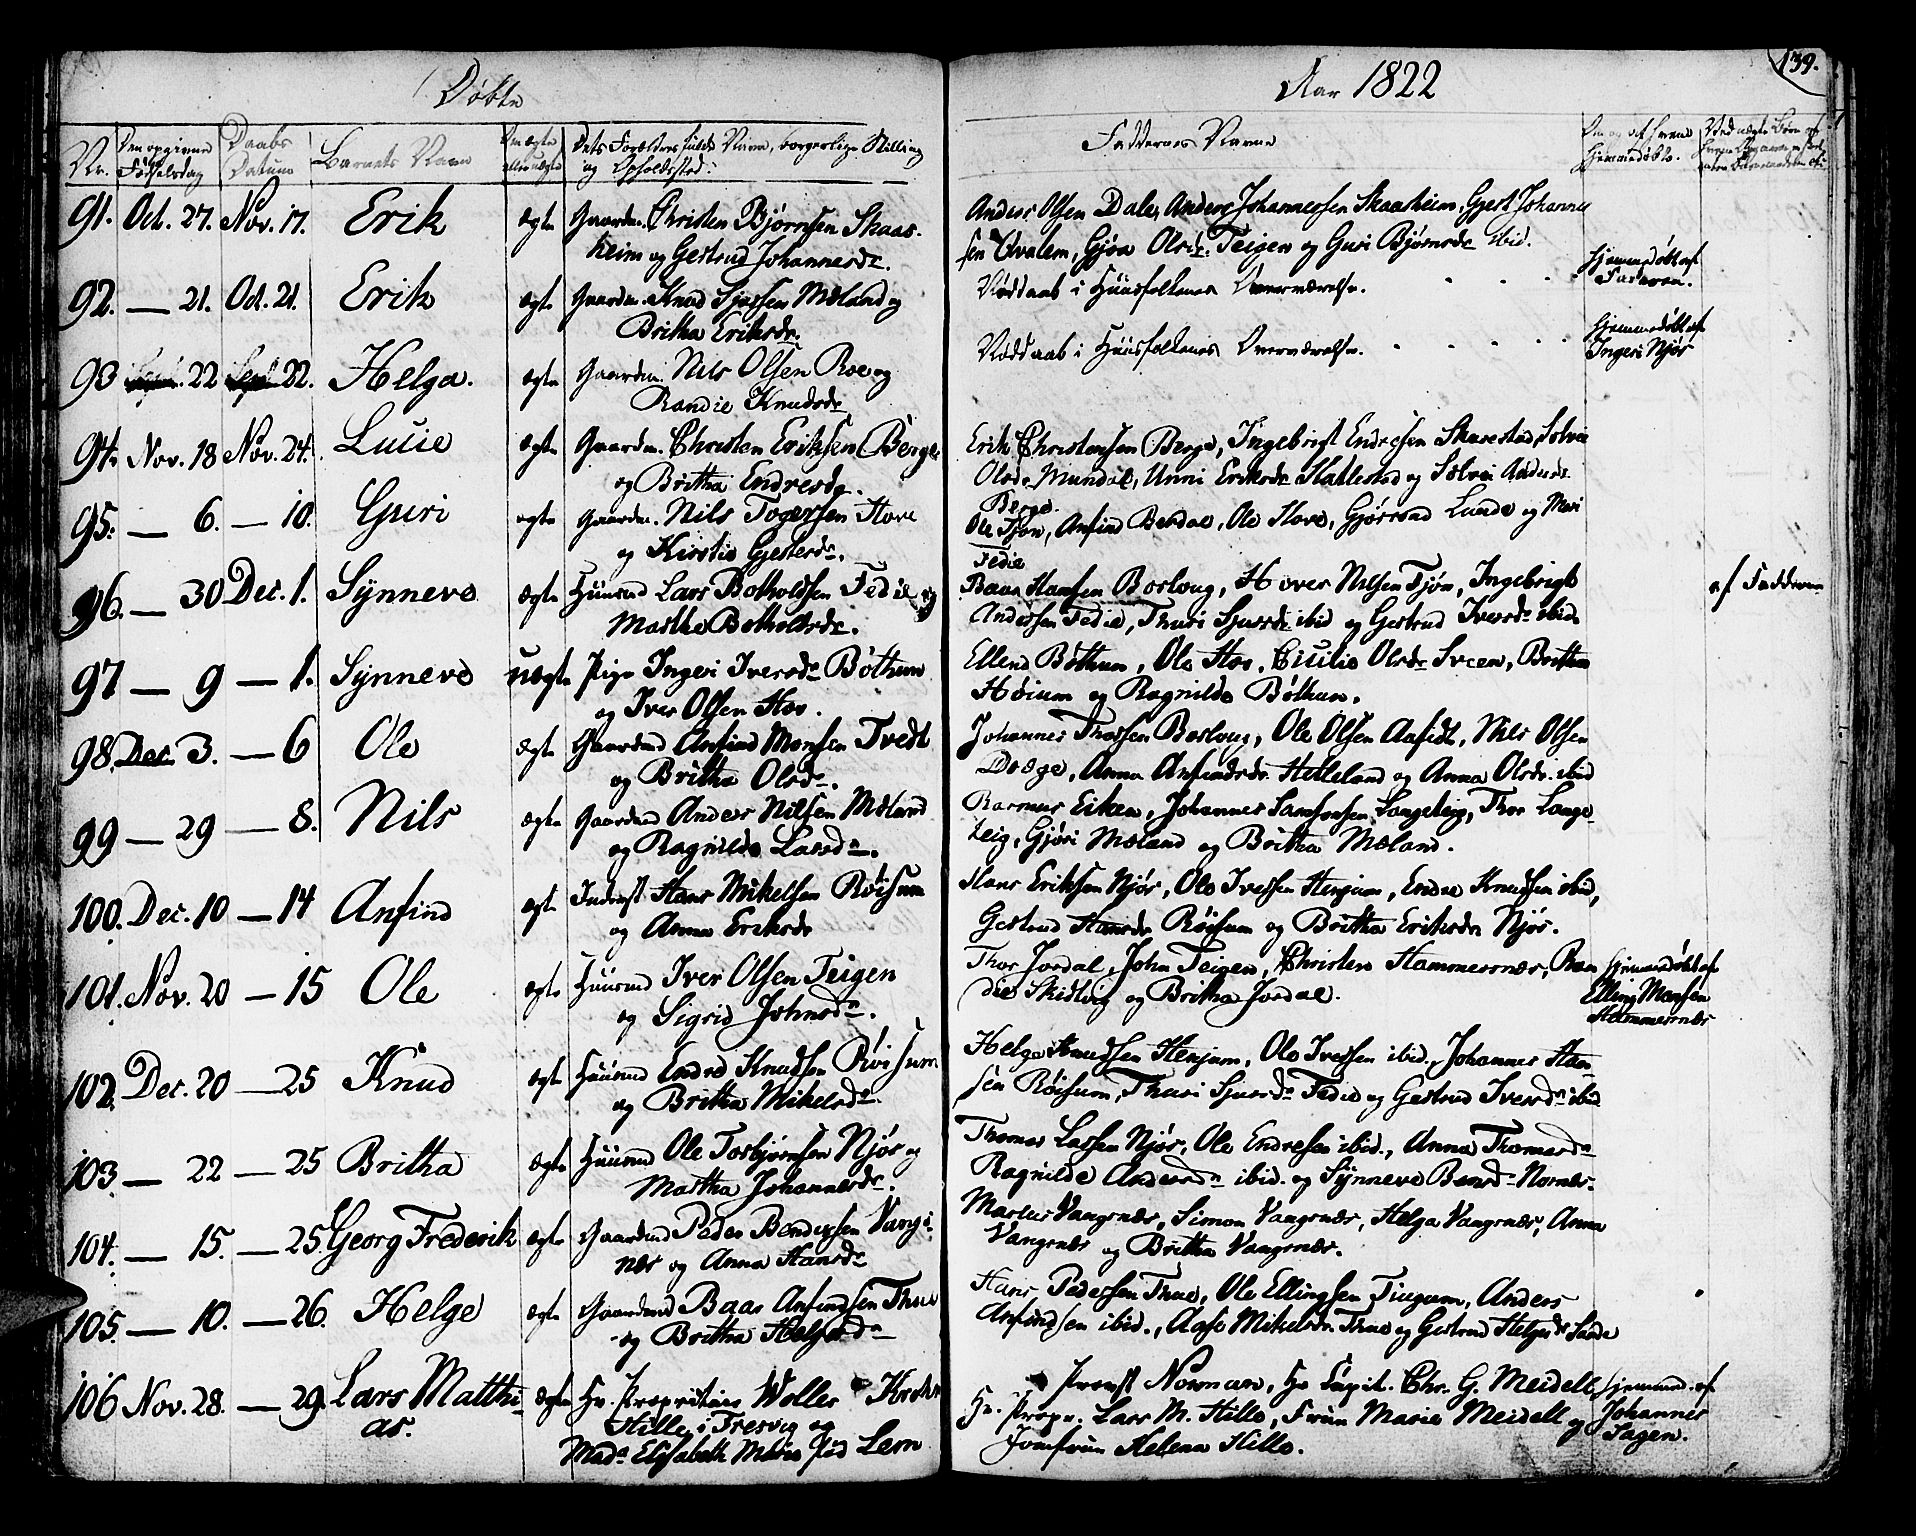 Døbte
Aar 1822
139.
Nr.
Den opgivne Fødselsdag
Daabs Datum
Barnets Navn
Om ægte eller uægte
Dets Forældres fulde Navn, borgerlige Stilling og Opholdssted.
Faddernes Navne
Hjemmedøbte.
91. Oct. 27. Nov. 17. Erik ægte Gaardm. Christen Bjørnsen Skaas-
heim og Gertrud Johannesdr.
Anders Olsen Dale, Anders Johannessen Skaasheim, Gjert Johannes
sen Qvalem, Gjøa Olsdr. Teigen og Guri Bjørnsdr ibid.
92. — 21. Oct. 21. Erik ægte Gaardm. Knud Sjursen Mæland og
Britha Eriksdr.
Nøddaab i Huusfolkenes Overværelse.
Hjemmedøbt af
Faderen.
93 Sept. 22 Sept. 22. Helga. ægte Gaardm. Nils Olsen Roe og
Randie Knudsdr
Nøddaab i Huusfolkenes Overværelse.
Hjemmedøbt af
Ingeri Njøs
94. Nov. 18 Nov. 24. Lucie ægte Gaardm. Christen Eriksen Berge
og Britha Endresdr.
Erik Christensen Berge, Ingebrigt Endresen Skarestad, Solvie
Olsdr Mundal, Unni Eriksdr Hatlestad og Solvi Anders
Berge.
95. — 6. — 10. Guri ægte Gaardm. Nils Togersen Hove
og Kirstie Gjertsdr.
Ole Tjøn, Anfind Berdal, Ole Hove, Gjørond Lunde og Mari
Fedie
96. — 30 Dec. 1. Synneve ægte Huusmd Lars Botholdsen Fedie og
Martha Botholdsdr.
Baar Hansen Borloug, Hover Nilsen Tjøn, Ingebrigt
Andersen Fedie, Thuri Sjursdr ibid og Gertrud Iversdr ibid.
af Fadderne
97 — 9 — 1. Synneve uægte Pige Ingeri Iversdr Bøthun
og Iver Olsen Hov.
Ellend Bøthun, Ole Hov, Cicilie Olsdr Sveen, Britha
Høium og Ragnilde Bøthun.
98. Dec. 3. — 6 Ole ægte Gaardmd Anfind Monsen Tvedt
og Britha Olsdr.
Johannes Thorsen Borloug, Ole Olsen Aafedt, Nils Olsen
Drege, Anna Anfindsdr Helleland og Anna Olsdr. ibid
99 — 29 — 8. Nils ægte Gaardmd Anders Nilsen Mæland
og Ragnilde Larsdr.
Rasmus Eiken, Johannes Samsonsen Langeteig, Thor Lange-
teig, Gjøri Mæland og Britha Mæland.
100. Dec. 10 — 14 Anfind ægte Inderst Hans Mikelsen Røisum
og Anna Eriksdr
Hans Eriksen Njøs, Ole Iversen Henjum, Endre Knudsen ibid,
Gertrud Hansdr Røisum og Britha Eriksdr Njøs.
101. Nov. 20 — 15 Ole ægte Huusmd Iver Olsen Teigen
og Sigrid Johnsdr.
Thor Jordal, John Teigen, Christen Hammersnæs, Ran
die Skidtvig og Britha Jordal.
Hjemmedøbt af
Elling Monsen
Hammersnæs
102. Dec. 20 — 25 Knud ægte Huusmd Endre Knudsen Røisum
og Britha Mikelsdr.
Helge Knudsen Henjum, Ole Iversen ibid., Johannes Han-
sen Røisum, Thuri Sjursdr Fedie og Gertrud Iversdr ibid
103 — 22 — 25 Britha ægte Huusmd Ole Torbjørnsen Njøs og
Martha Johannesdr.
Thomas Larsen Njøs, Ole Endresen ibid., Anna Thomasdr
Ragnilde Andersdr ibid. og Synneve Bendr Nornes.
104. — 15. — 25. Georg Frederik ægte Gaardmd Peder Bendixsen Vangs-
næs og Anna Hansdr
Marcus Vangsnæs, Simon Vangsnæs, Helga Vangsnæs, Anna
Vangsnæs og Britha Vangsnæs.
105. — 10. — 26. Helge ægte Gaardmd Baar Anfindsen Thue
og Britha Helgesdr
Hans Pedersen Thue, Ole Ellingsen Tingum, Anders
Anfindsen ibid., Aase Mikelsdr Thue og Gertrud Helgesdr Sande
106 Nov. 28. — 29. Lars Matthi-
as. ægte Hr. Proprietair Woller Krohn
Hille i Fresvig og
Mad. Elisabeth Maria fød Lem
Provst Norman, Hr Capit. Chr. G. Meidell
Hr. Propr. Lars M. Hille, Frue Marie Meidell og
Jomfrue Helena Hille.
Hjemmed. af
Johannes
Lagen.